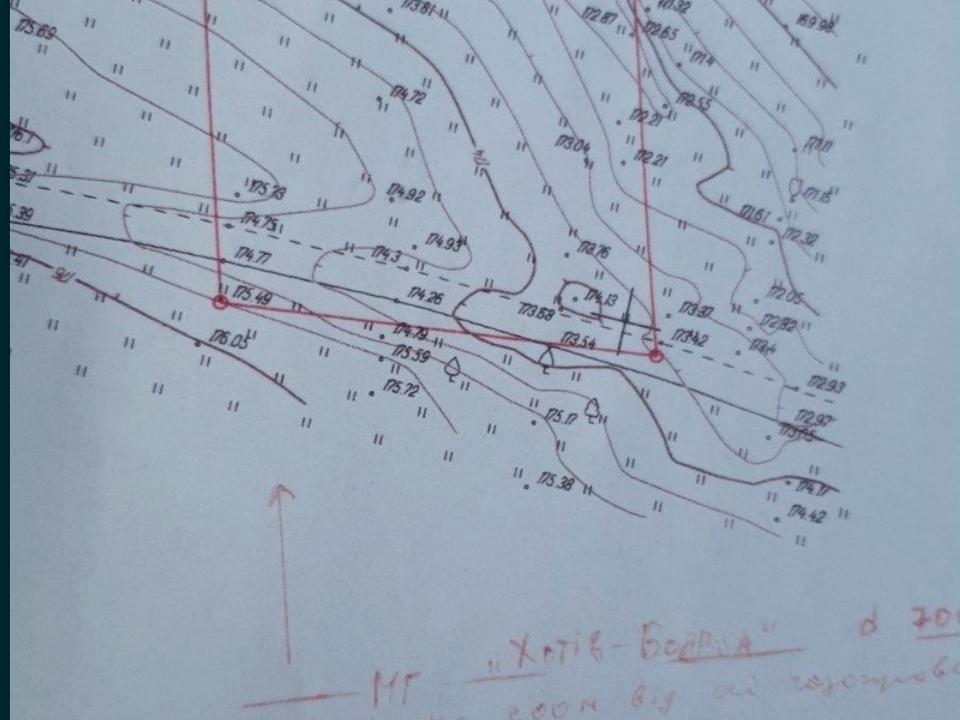 173.81
171.32
169.98
172.67
172.65
175.69
171.4
174.72
172.55
172.21
173.04
171.11
172.21
175.31
175.73
174.92
171.15
171.61
174.75
172.32
174.93
174.3
173.76
174.77
175.49
174.26
174.13
172.05
173.68
173.37
172.92
173.54
173.42
173.4
176
174.79
176.05
175.59
172.93
175.72
172.97
175.17
175.38
174.17
174.42
МГ "Хотів-Боярка" d 700
200м від осі газопрово